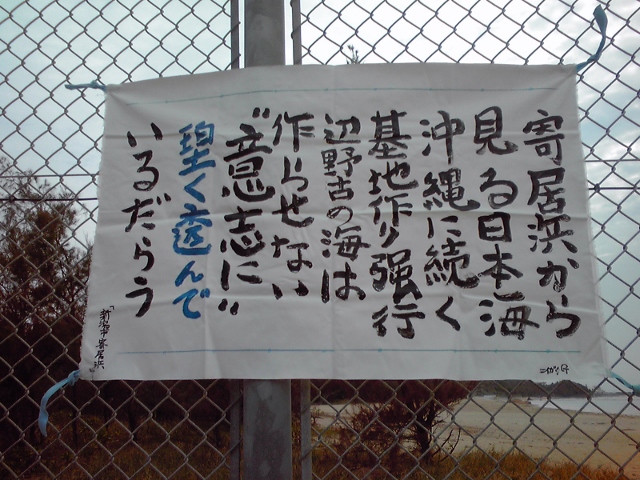 寄居浜から
見る日本海
沖縄に続く
基地作り強行
辺野古の海は
作らせない
"意志に"
碧く澄んで
いるだらう
「新潟市寄居浜」